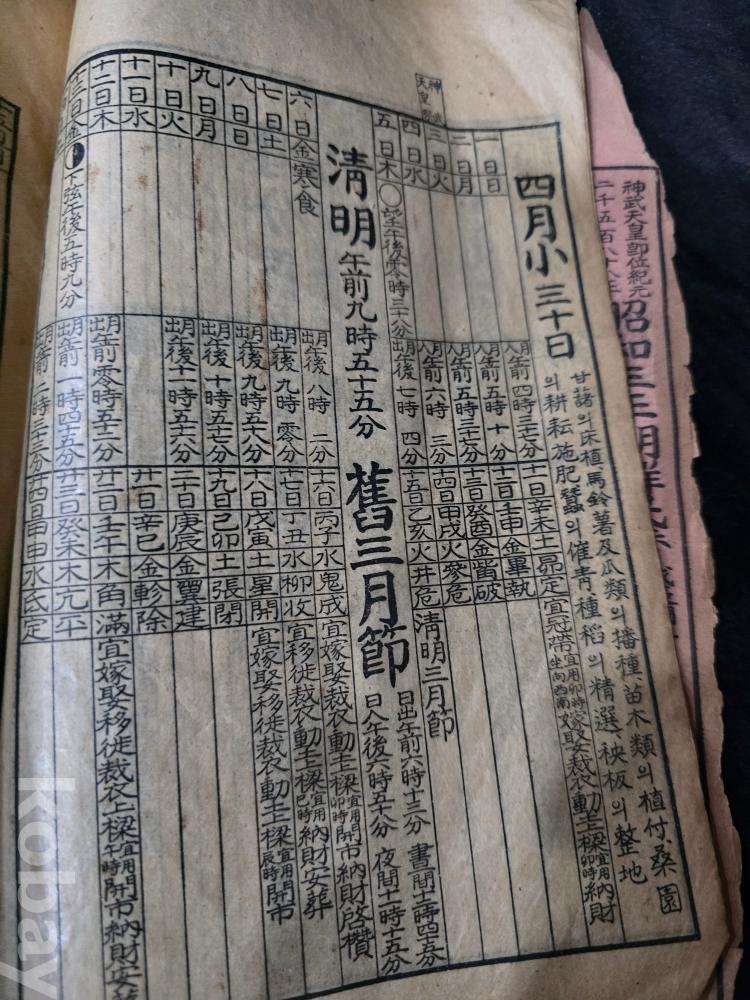 神武天皇卽位紀元
二千五百八十八年
昭和三
四月小 三十日
甘藷의床植馬鈴薯及瓜類의播種苗木類의植付桑園
의耕耘施肥蠶의催靑種稻의精選秧板의整地
一日日 月入午前四時三七分 十一日辛未土昴定 宜冠帶宜用卯時坐向西南嫁娶裁衣動土上樑宜用卯時納財
二日月 月入午前五時十分 十二日壬申金畢執
神武天皇祭 三日火 月入午前五時三七分 十三日癸酉金觜破
四日水 月入午前六時三分 十四日甲戌火參危
五日木 望午後零時三十八分 月出午後七時四分 十五日乙亥火井危 淸明三月節
淸明 午前九時五十五分 舊三月節 日出午前六時十三分 晝間十二時四五分
日入午後六時五十八分 夜間十一時十五分
六日金 寒食 月出午後八時二分 十六日丙子水鬼成 宜嫁娶裁衣動土上樑宜用卯時開市納財啓欑
七日土 月出午後九時零分 十七日丁丑水柳收 宜移徙裁衣動土上樑宜用巳時納財安葬
八日日 月出午後九時五八分 十八日戊寅土星開 宜嫁娶移徙裁衣動土上樑宜用辰時開市
九日月 月出午後十時五七分 十九日己卯土張閉
十日火 月出午後十一時五六分 二十日庚辰金翼建
十一日水 廿一日辛巳金軫除
十二日木 月出午前零時五二分 廿二日壬午木角滿 宜嫁娶移徙裁衣上樑宜用午時開市納財安葬
十三日金 下弦午後五時九分 月出午前一時四五分 廿三日癸未木亢平
月出午前二時三三分 廿四日甲申水氐定
kobay